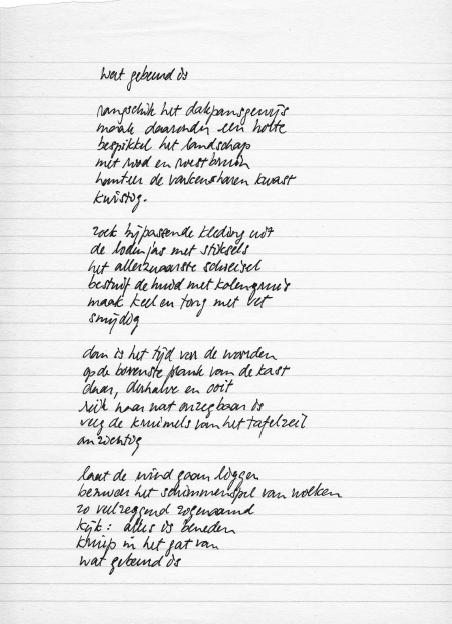 wat gebeurd is
rangschik het dakpansgewijs
maak daaronder een holte
bespikkel het landschap
met rood en roestbruin
hanteer de varkensharen kwast
kwistig.
zoek bijpassende kleding uit
de lodenjas met stiksels
het allerzwaarste schoeisel
bestuif de huid met kolengruis
maak keel en tong met vet
smijdig
dan is het tijd voor de woorden
op de bovenste plank van de kast
daar, derhalve en ooit
reik naar wat onzegbaar is
veeg de kruimels van het tafelzeil
omzichtig
laat de wind gaan liggen
bezweer het schimmenspel van wolken
zo veelzeggend zogenaamd
kijk: alles is beneden
kruip in het gat van
wat gebeurd is